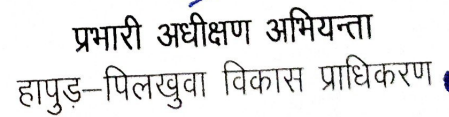 प्रभारी अधीक्षण अभियन्ता
हापुड़–पिलखुवा विकास प्राधिकरण